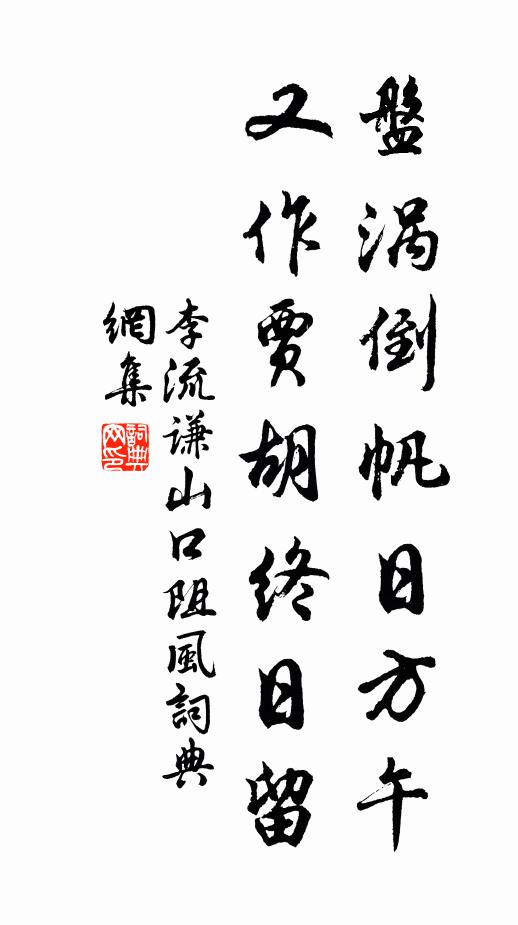 盤渦倒帆日方午
又作賈胡終日留
李流谦山口阻風詞典
網集
詞典網印